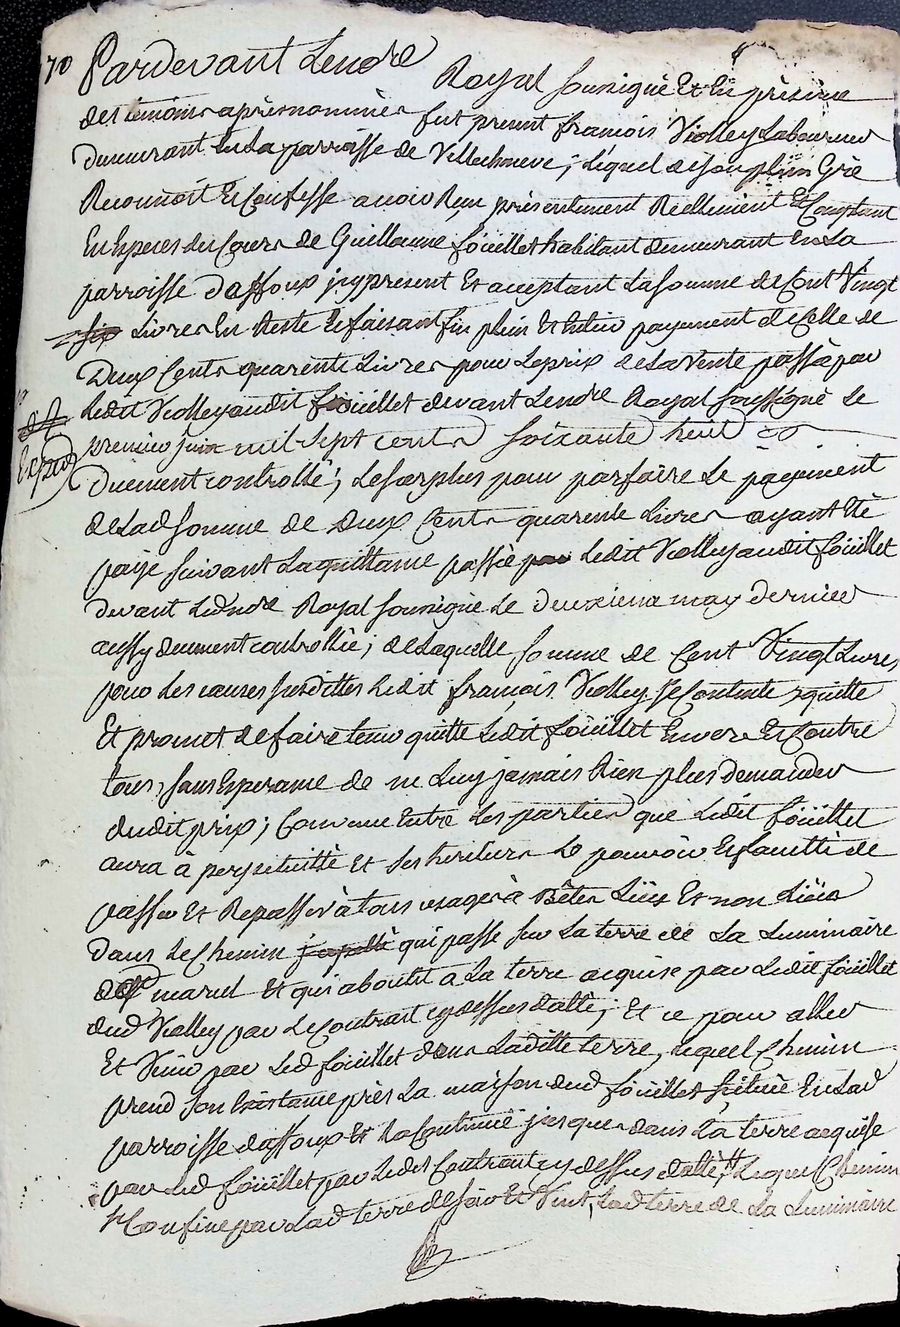 70 Pardevant Lenore Royal soussigné Et En présence
des temoins aprésnommés fut present francois Violley Laboureur
demeurant En La parroisse de Villecheneve, Lequel de son plein Gré
Reconnoit Et Confesse avoir Reçu présentement Reellement Et Comptant
En Especes du Cours de Guillaume foüillet habitant demeurant En La
parroisse Daffoux jcy present Et acceptant La somme de Cent Vingt
Livres En Reste Et faisant fin plein Et Entier payement de Celle de
Deux Cents quarente Livres pour Le prix de La Vente passé par
Ledit Violley audit foüillet devant Lenore Royal soussigné Le
premier juin mil sept cents soixante huit
Exped
Duement controllé; Le surplus pour parfaire Le payement
de Lad somme de Deux Cents quarente Livres ayant Eté
payé suivant La quittance passée par Ledit Violley audit foüillet
devant Lednore Royal soussigné Le deuxieme may dernier
aussy duement controllée; de Laquelle somme de Cent Vingt Livres
pour Les causes susdittes Ledit francois Violley se Contente quitte
Et promet de faire tenir quitte Ledit foüillet Envers Et Contre
tous, sans Esperance de ne Luy jamais Rien plus demander
dudit prix; Convenu Entre Les parties que Ledit foüillet
aura à perpetuitté Et ses heritiers Le pouvoir Et faculté de
passer Et Repasser à tous usages à Bêtes Liées Et non Liées
dans Le Chemin qui passe sur La terre de La Luminaire
marcel Et qui aboutit a La terre acquise par Ledit foüillet
dud Violley par Le Contrat cy dessus datté; Et ce pour aller
Et Venir par Led foüillet dans Laditte terre, Lequel Chemin
prend son Existance près La maison dud foüillet scituée En Lad
parroisse daffoux Et La Continue jusques dans La terre acquise
par Led foüillet par Ledit Contrat cy dessus datté, Lequel Chemin
se Confine par Lad terre de soir Et Vent, Lad terre de La Luminaire